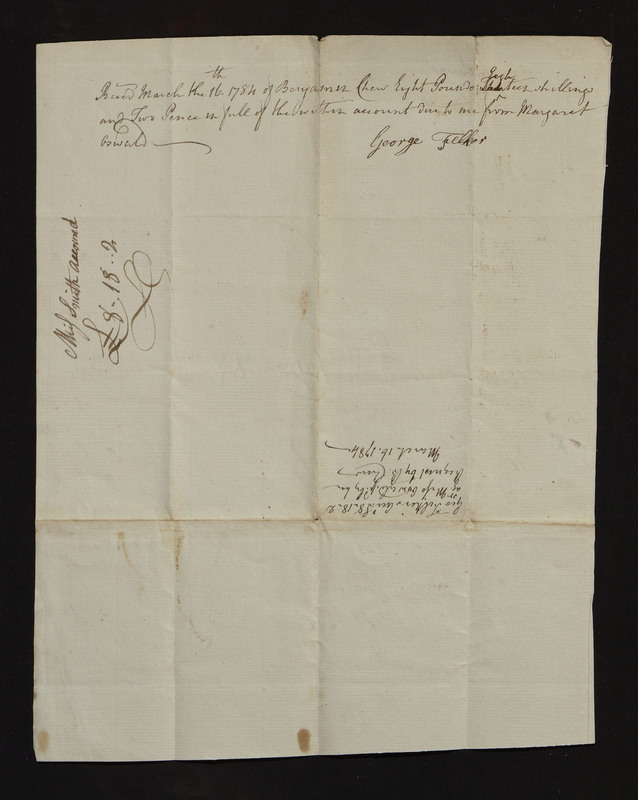 Recd March the 16th 1784 of Benjamin Chew Eight Pounds Eighteen shillings
and Two Pence in full of the within account due to me from Margaret
Oswald
George Felker
Miss Smith account
£8-18..2
Geo Felker's Acct £8.18.2
agt Mrs Oswald pd by her
Request by B Chew
March 16. 1784